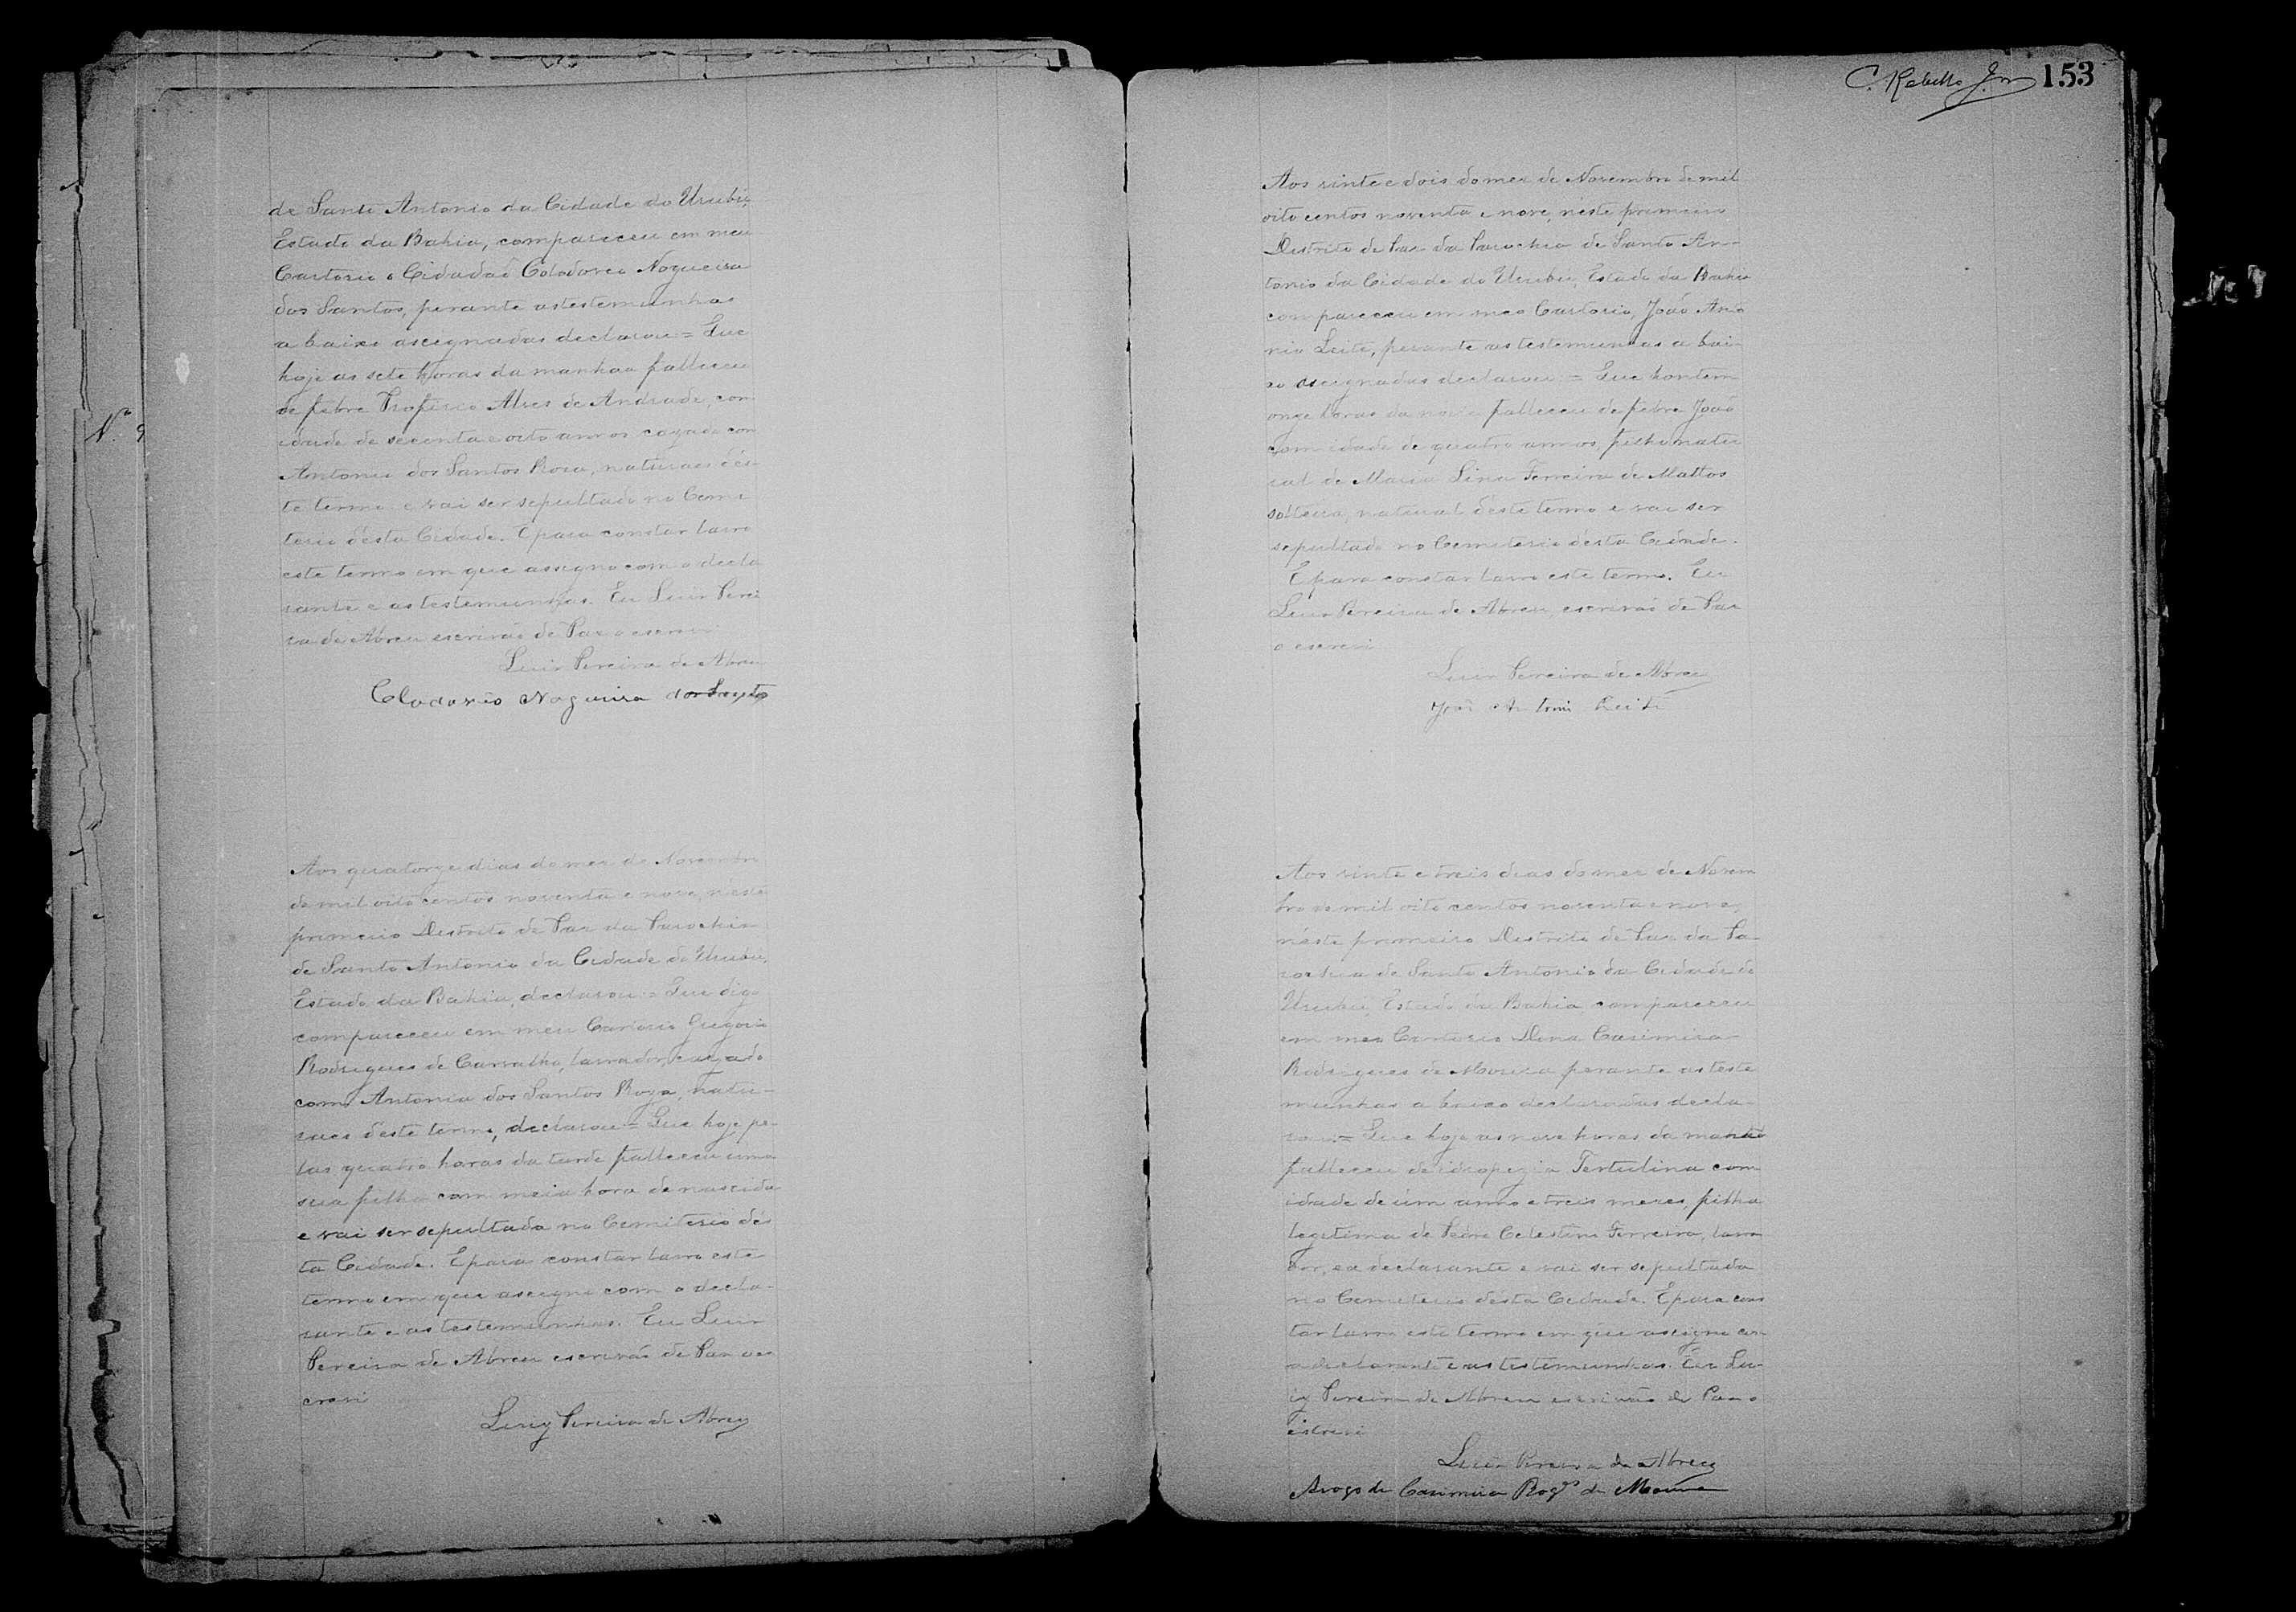 de Santo Antonio da Cidade do Urubú,
Estado da Bahia, compareceu em meu
Cartorio o Cidadaõ Colodoveo Nogueira
dos Santos, perante as testemunhas
a baixo assegnadas declarou = Que
hoje as sete horas da manhaa falleceu
de febre Profirio Alves de Andrade, com
idade de secenta e oito annos cazado com
Antonia dos Santos Roza, naturaes dés
te termo e vai ser sepultado no Cemi
terio désta Cidade. E para constar lavro
este termo em que assigno com o decla
rante e as testemunhas. Eu Luiz Perei
ra de Abreu escrivaõ de Paz o escrevi
Luiz Pereira de Abreu
Clodovêo Nogueira dos Santos
Nº 9
Aos quatorze dias do mez de Novembro
de mil oito centos noventa e nove, néste
primeiro Districto de Paz da Parochia
de Santo Antonio da Cidade do Urubú,
Estado da Bahia, declarou = Que digo
compareceu em meu Cartorio Gregorio
Rodrigues de Carvalho, lavrador, cazado
com Antonia dos Santos Roza, natu-
raes déste termo, declarou = Que hoje pe-
las quatro horas da tarde falleceu uma
sua filha com meia hora de nascida
e vai ser sepultada no Cemiterio dés
ta Cidade. E para constar lavro este
termo em que assigno com o decla-
rante e as testemunhas. Eu Luiz
Pereira de Abreu escrivaõ de Paz o es
crevi
Luiz Pereira de Abreu
C. Rabello J.or 153
Aos vinte e dois do mez de Novembro de mil
oito centos noventa e nove, néste primeiro
Districto de Paz da Parochia de Santo An-
tonio da Cidade do Urubú, Estado da Bahia
compareceu em meo Cartorio, João Anto
nio Leite, perante as testemunhas a bai-
xo assegnadas declarou = Que hontem
onze horas da noite falleceu de febre João
com idade de quatro annos, filho natu
ral de Maria Lina Ferreira de Mattos
solteira, natural déste termo e vai ser
sepultado no Cemeterio désta Cidade.
E para constar lavro este termo. Eu
Luiz Pereira de Abreu, escrivaõ de Paz
o escrevi
Luiz Pereira de Abreu
João Antonio Leite
Aos vinte e treis dias do mez de Novem
bro de mil oito centos noventa e nove,
néste primeiro Districto de Paz da Pa
rochia de Santo Antonio da Cidade do
Urubú, Estado da Bahia compareceu
em meo Cartorio Dona Casimira
Rodrigues de Moura perante as teste
munhas a baixo declaradas decla-
rou = Que hoje as nove horas da manhã
falleceu de idropezia Tertulina com
idade de úm anno e treis mezes, filha
legitima de Pedro Celestino Ferreira, lavra
dor, e a declarante e vai ser sepultada
no Cemeterio désta Cidade. E para cons
tar lavro este termo em que assigno com
a declarante e as testemunhas. Eu Lu-
iz Pereira de Abreu escrivão de Paz o
escrevi
Luiz Pereira de Abreu
Arogo de Casimira Roqz de Moura